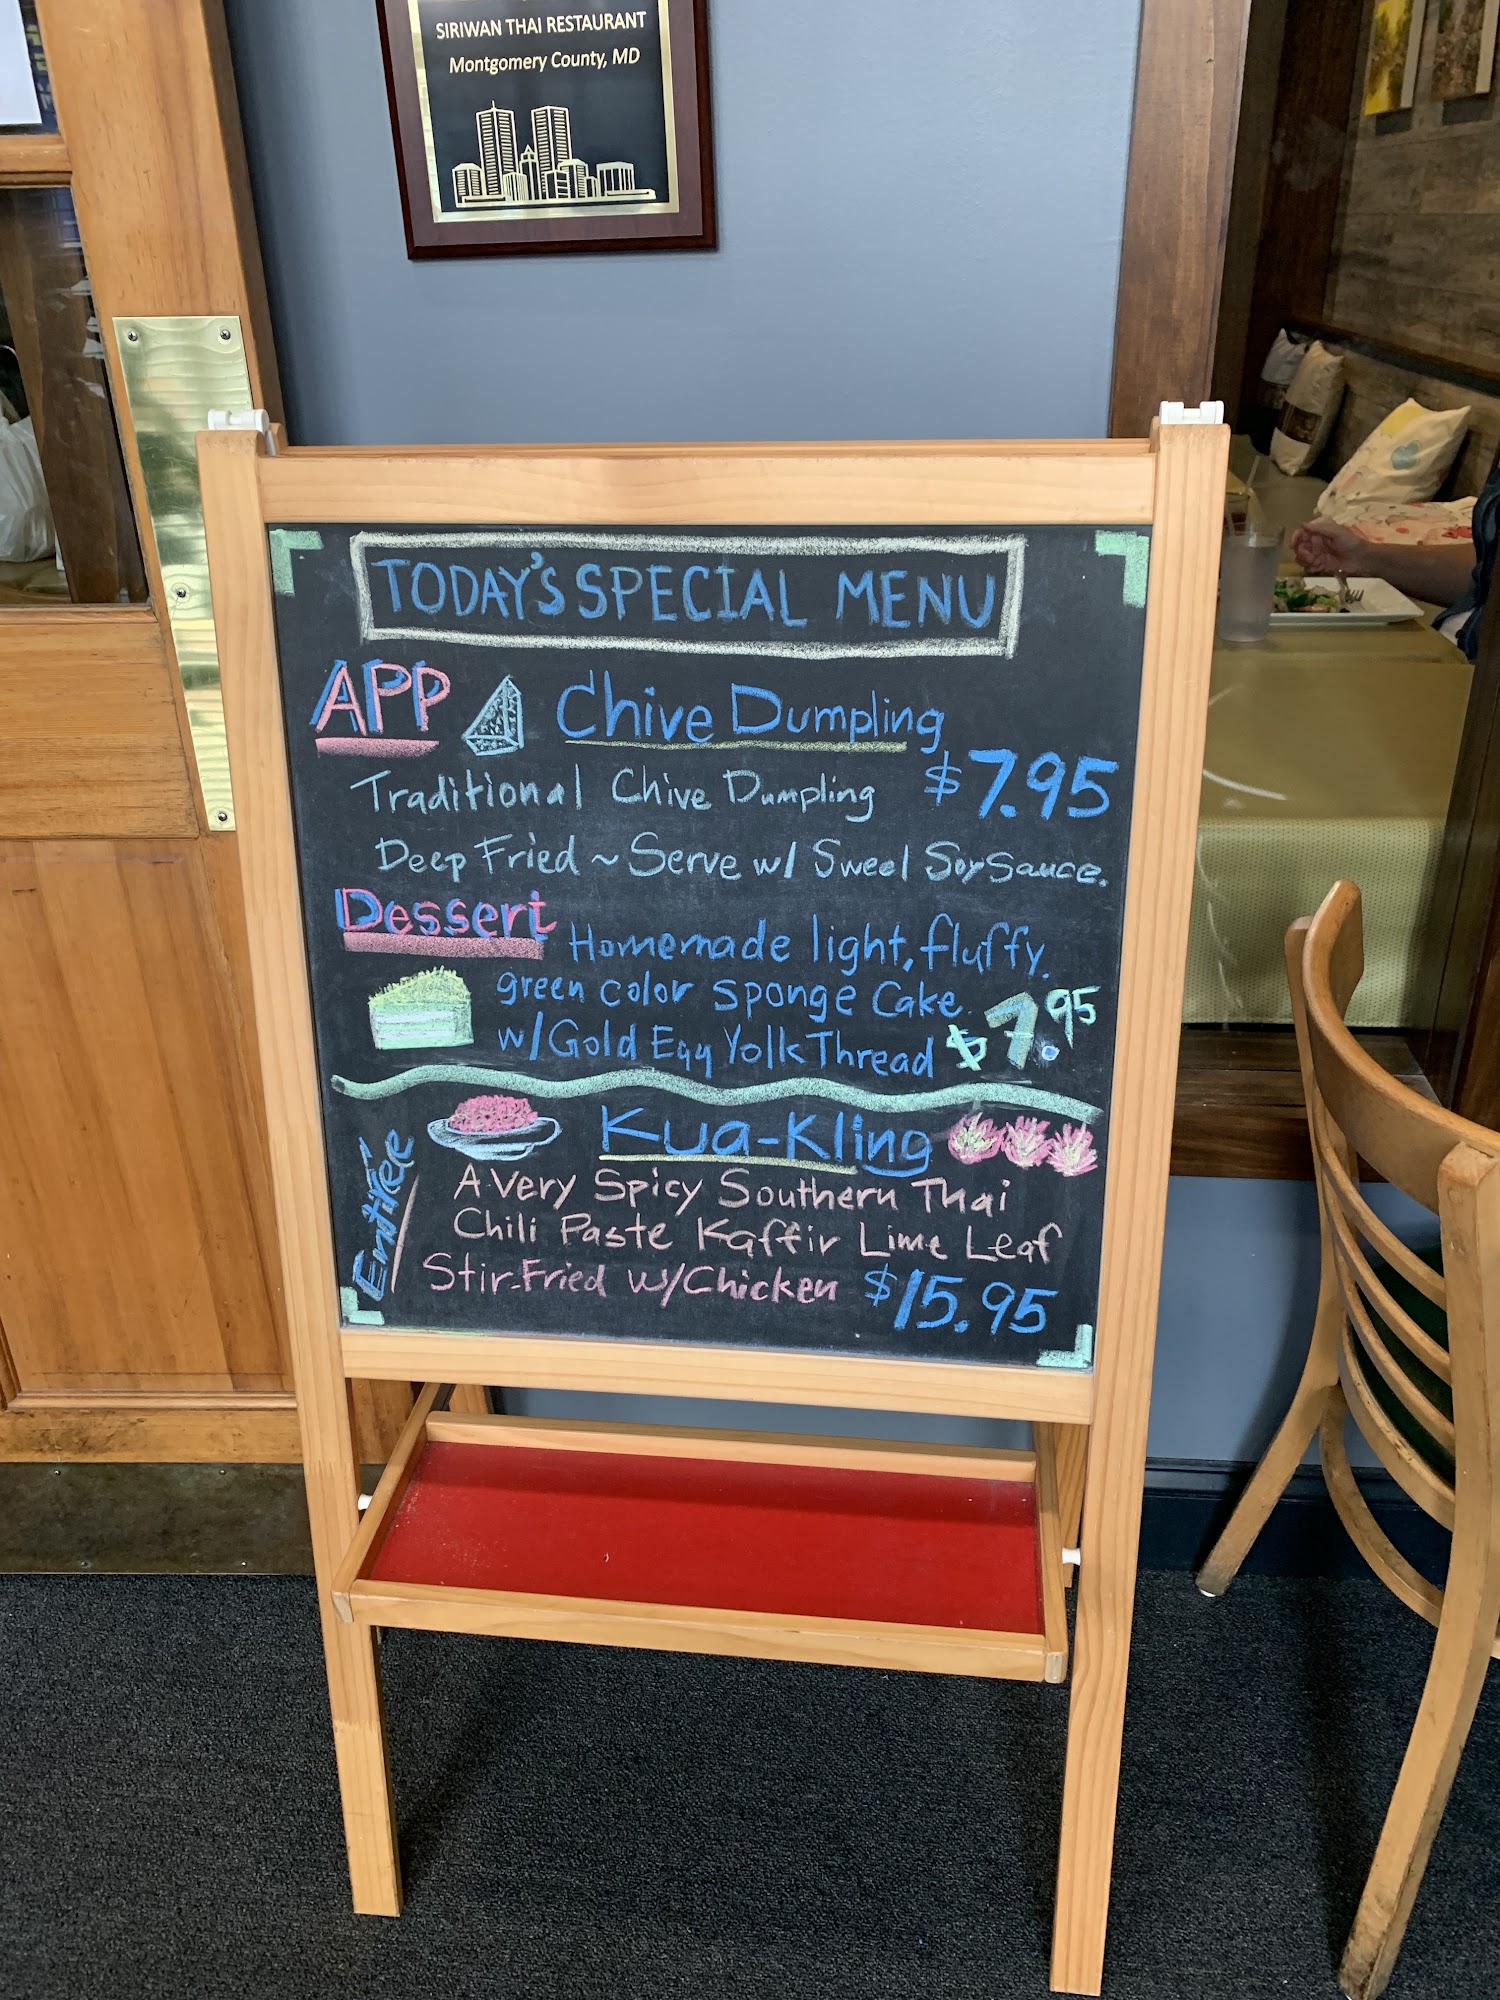 SIRIWAN THAI RESTAURANT
Montgomery County, MD
TODAY'S SPECIAL MENU
APP Chive Dumpling
Traditional Chive Dumpling $7.95
Deep Fried ~ Serve w/ Sweel Soy Sauce.
Dessert Homemade light, fluffy.
green color sponge Cake.
w/Gold Egg Yolk Thread $7.95
Entrée
Kua-Kling
A Very Spicy Southern Thai
Chili Paste Kaffir Lime Leaf
Stir-Fried w/Chicken $15.95